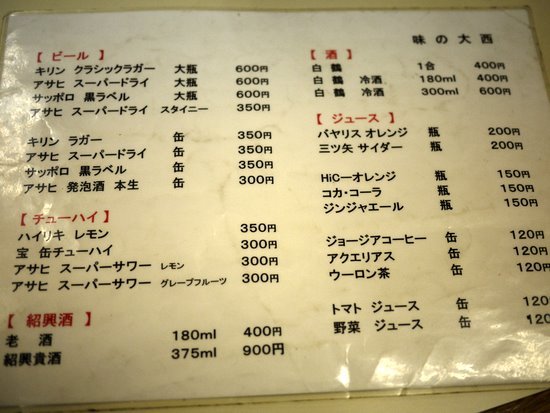 味の大西
【 ビール 】
キリン クラシックラガー 大瓶 600円
アサヒ スーパードライ 大瓶 600円
サッポロ 黒ラベル 大瓶 600円
アサヒ スーパードライ スタイニー 350円
キリン ラガー 缶 350円
アサヒ スーパードライ 缶 350円
サッポロ 黒ラベル 缶 350円
アサヒ 発泡酒 本生 缶 300円
【 チューハイ 】
ハイリキ レモン 350円
宝 缶チューハイ 300円
アサヒ スーパーサワー レモン 300円
アサヒ スーパーサワー グレープフルーツ 300円
【 紹興酒 】
老 酒 180ml 400円
紹興貴酒 375ml 900円
【 酒 】
白 鶴 1合 400円
白 鶴 冷酒 180ml 400円
白 鶴 冷酒 300ml 600円
【 ジュース 】
バヤリス オレンジ 瓶 200円
三ツ矢 サイダー 瓶 200円
HiCーオレンジ 瓶 150円
コカ・コーラ 瓶 150円
ジンジャエール 瓶 150円
ジョージアコーヒー 缶 120円
アクエリアス 缶 120円
ウーロン茶 缶 120円
トマト ジュース 缶 120
野菜 ジュース 缶 120